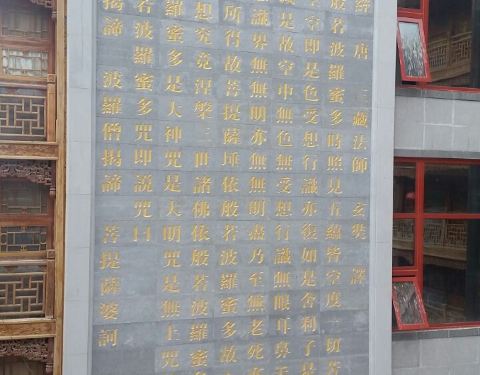 經 唐 三藏法師 玄奘 譯
般若波羅蜜多時照見五蘊皆空度一切苦
空即是色受想行識亦復如是舍利子是
是故空中無色無受想行識無眼耳鼻舌
意識界無無明亦無無明盡乃至無老死亦
所得故菩提薩埵依般若波羅蜜多故
想究竟涅槃三世諸佛依般若波羅蜜多
羅蜜多是大神咒是大明咒是無上咒
若波羅蜜多咒即說咒曰
揭諦 波羅僧揭諦 菩提薩婆訶